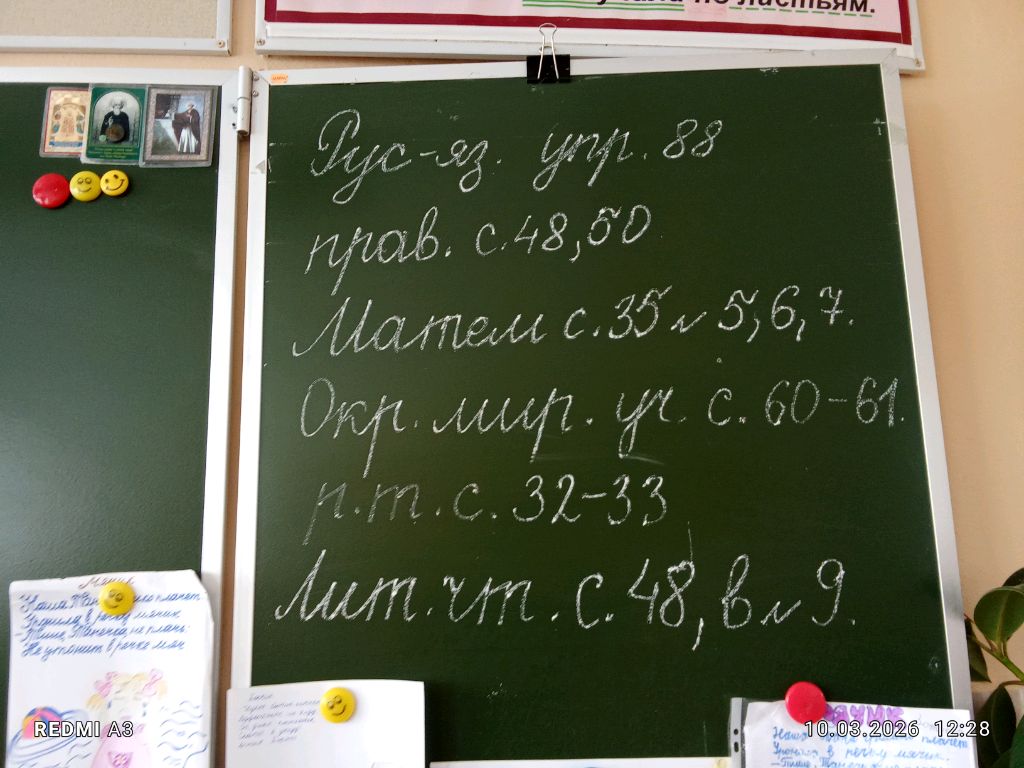 по листьям.
Рус-яз. упр. 88
прав. с. 48, 50
Матем с. 35 № 5, 6, 7.
Окр. мир. уч. с. 60-61.
р.т. с. 32-33
Лит. чт. с. 48, в № 9.
Наша плачет
Уронила в речку мячик
Не утонит в речке мяч
Наша плачет
Уронила в речку мячик.
REDMI A3
10.03.2026 12:28